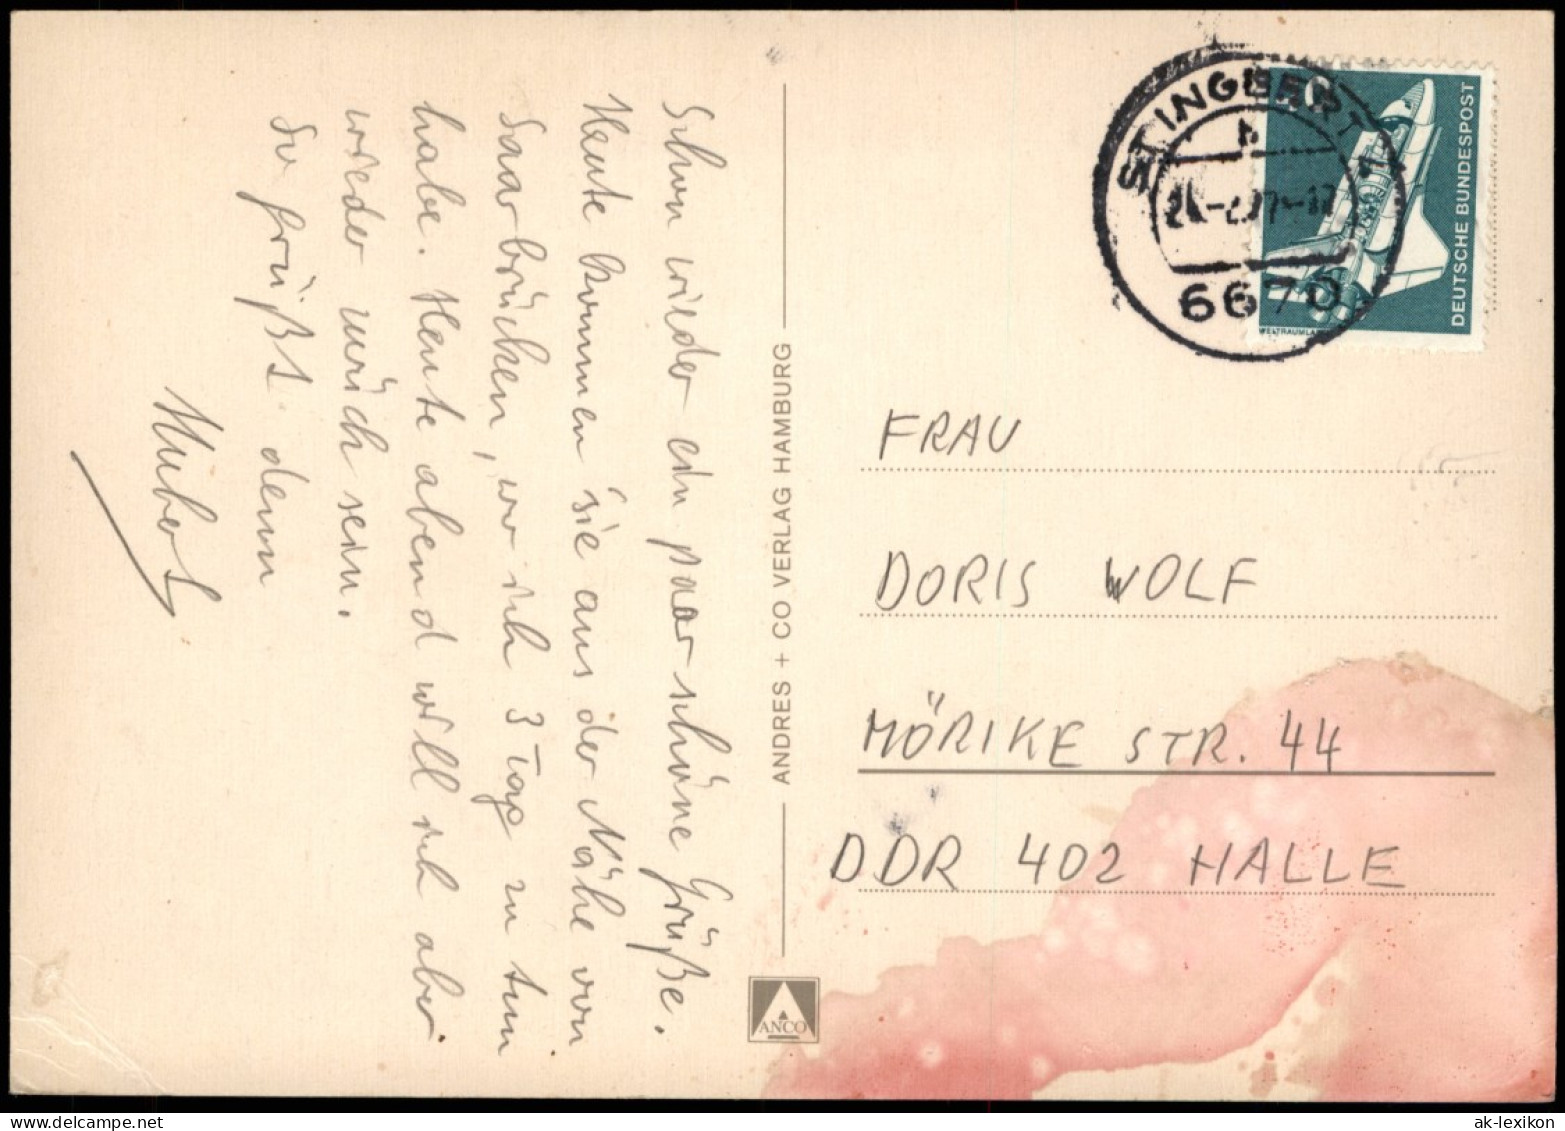 Schon wieder ein paar schöne Grüße.
Heute kommen sie aus der Nähe von
Saarbrücken, wo ich 3 Tage zu tun
habe. Heute abend will ich aber
wieder zurück sein.
So grüßt denn
Hubert
ANDRES + CO VERLAG HAMBURG
ANCO
ST INGBERT 1
h
-17
6670
DEUTSCHE BUNDESPOST
FRAU
DORIS WOLF
MÖRIKE STR. 44
DDR 402 HALLE
ak-lexikon